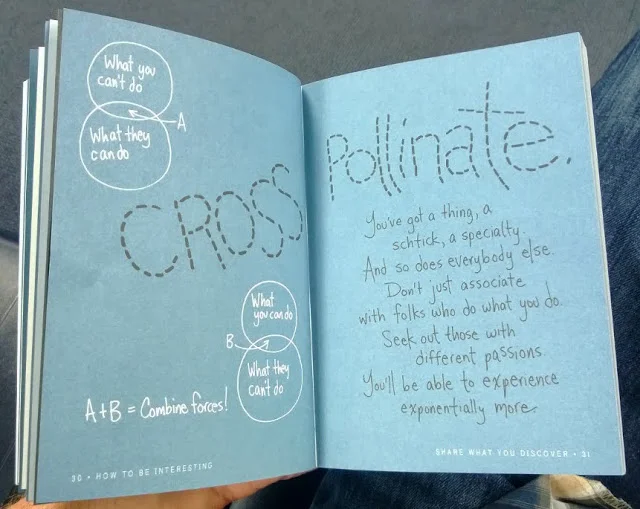 What you
can't do
A
What they
can do
CROSS
What
you can do
B
What they
can't do
A+B = Combine forces!
30 • HOW TO BE INTERESTING
Pollinate.
You've got a thing, a
schtick, a specialty.
And so does everybody else.
Don't just associate
with folks who do what you do.
Seek out those with
different passions.
You'll be able to experience
exponentially more.
SHARE WHAT YOU DISCOVER • 31